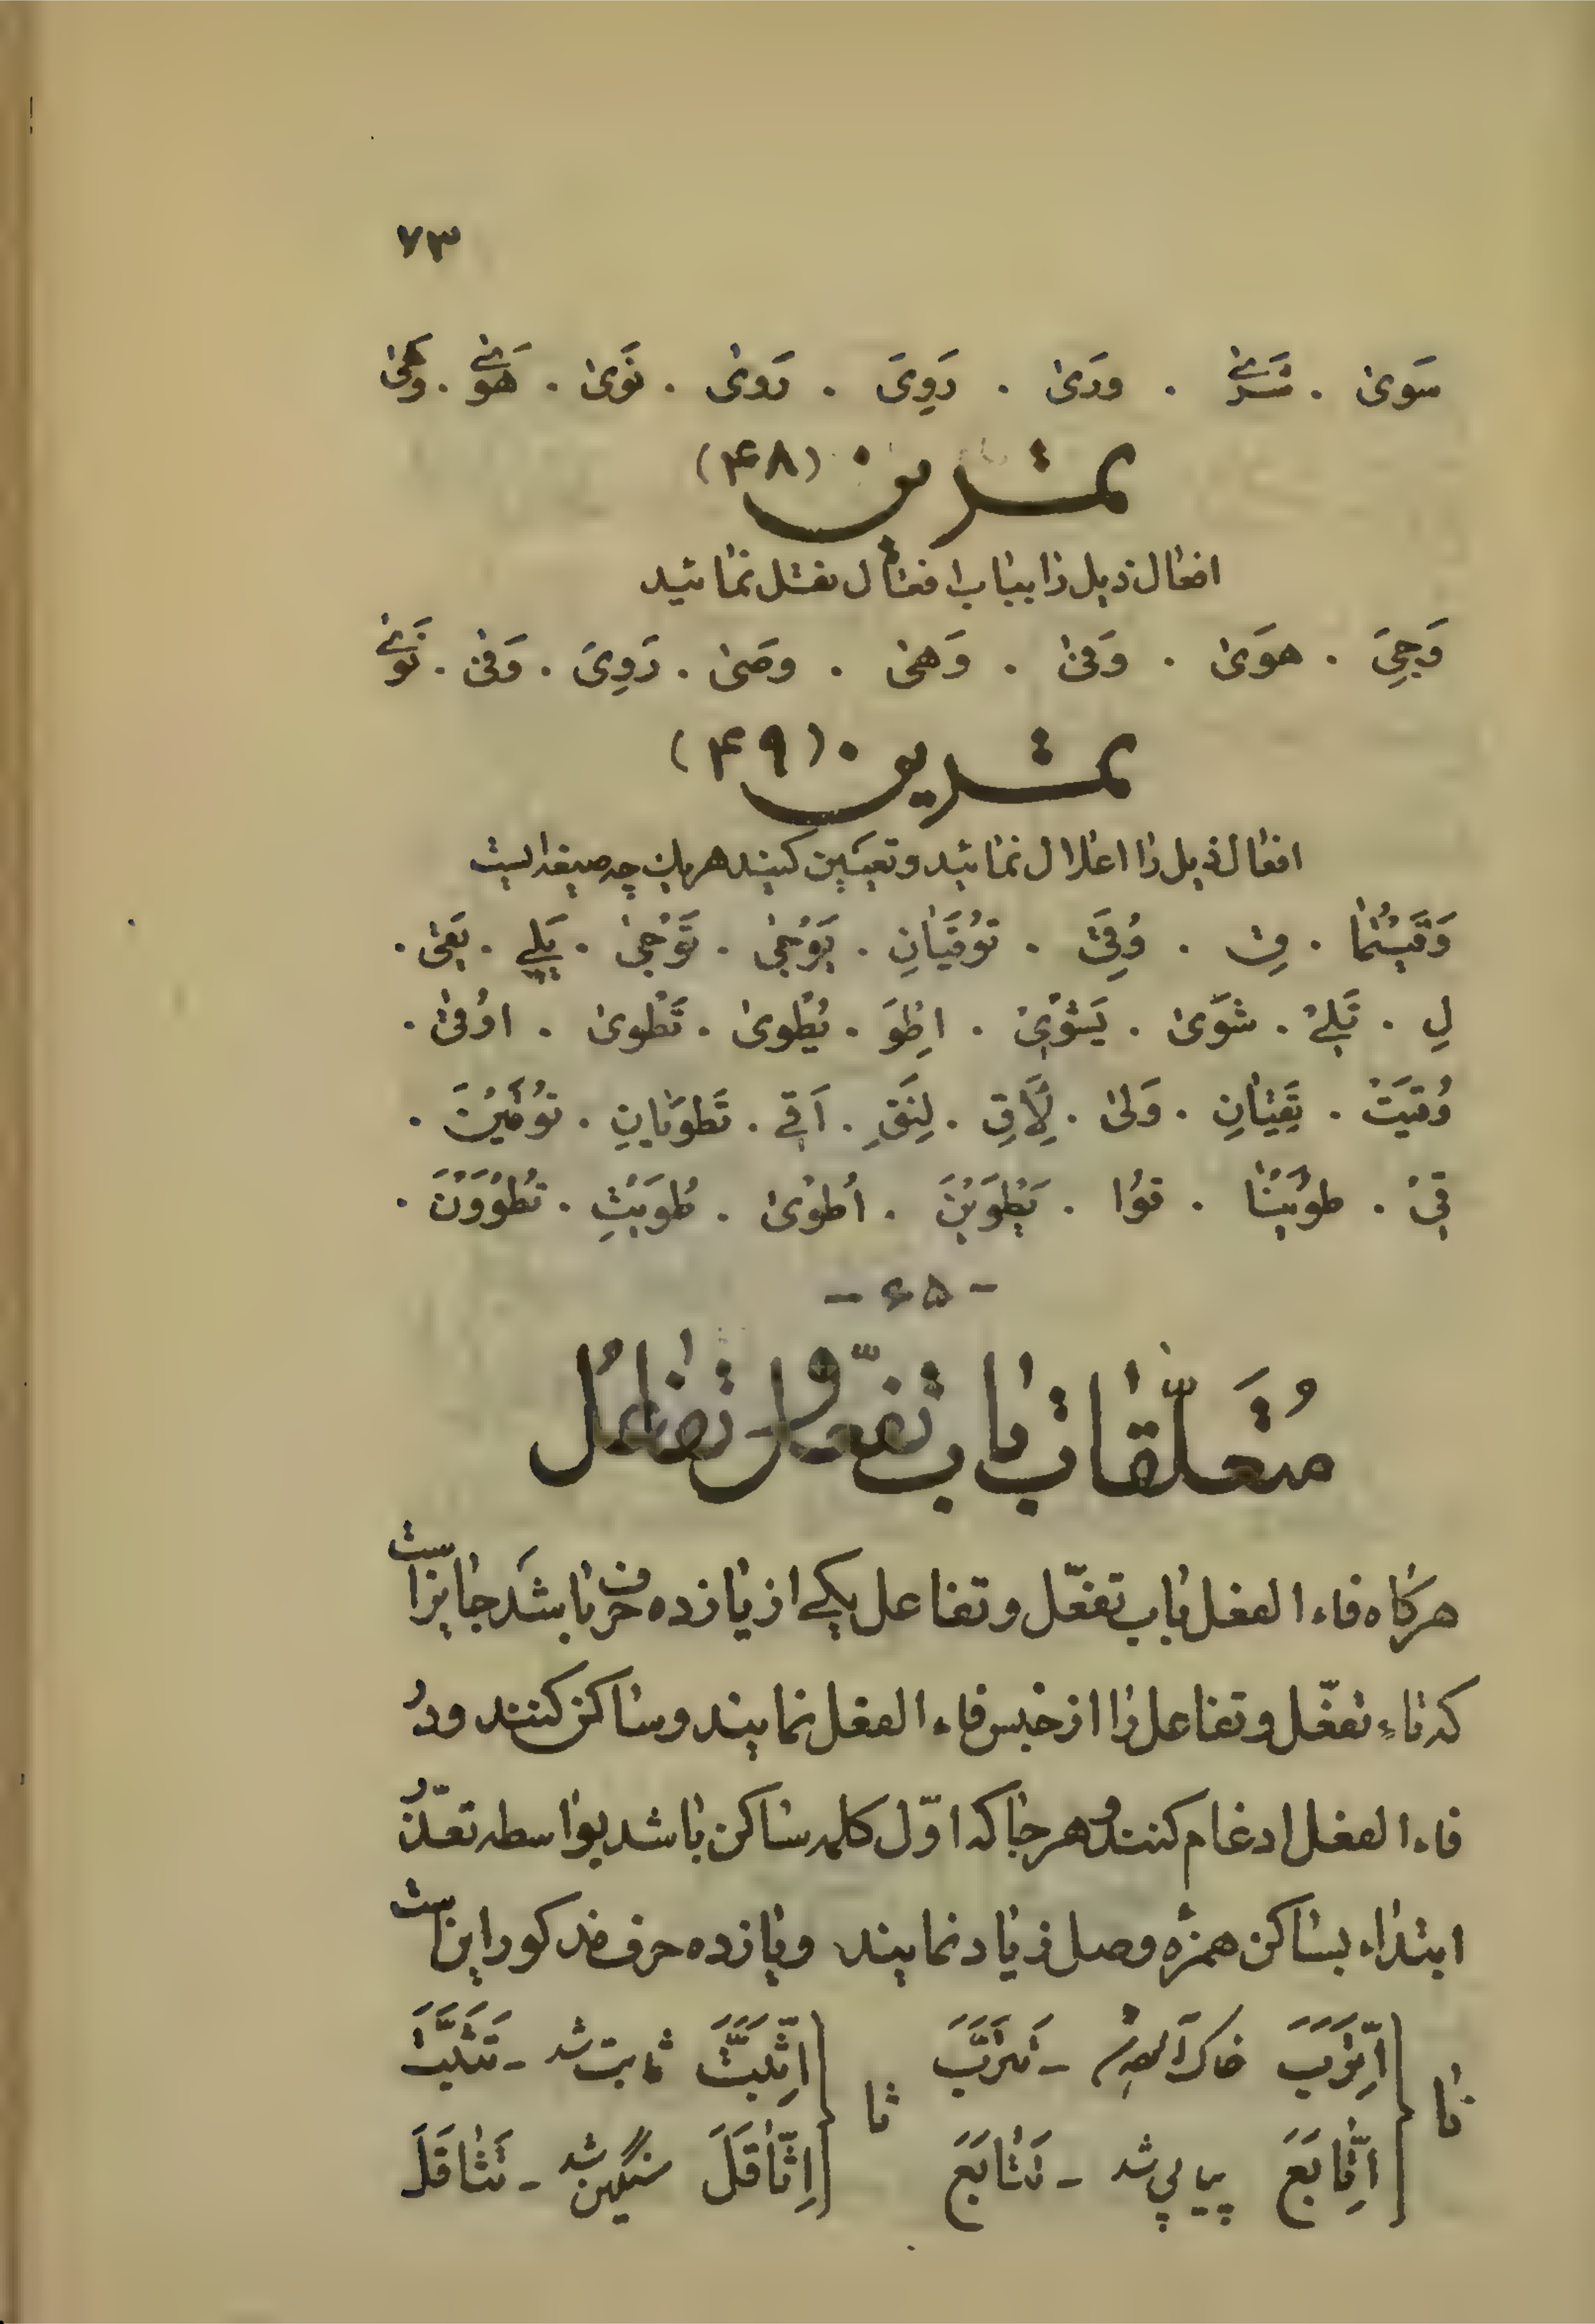 ۷۳
سَوىٰ . شَرىٰ . وَرَىٰ . رَوِىَ . رَوىٰ . نَوَىٰ . هَوىٰ . وَهَىٰ
تمـــرین (۴۸)
افعال ذیل را بباب افتعال نقل نمائید
وَجِىَ . هوَىٰ . وَفىٰ . وَهىٰ . وصَىٰ . رَوِىَ . وَقىٰ . نَوىٰ
تمـــرین (۴۹)
افعال ذیل را اعلال نمائید و تعیین کنید هریک چه صیغه ایست
وَقَيْتُمٰا . قِ . وُقِىَ . تُوقَيٰانِ . يَوْجىٰ . تَوْجىٰ . يَلى . يَقىٰ .
لِ . تَلى . شَوَىٰ . يَشْوِىٰ . اِطْوَ . يُطْوىٰ . تَطْوىٰ . اُوْقىٰ .
وُقيَتْ . تَقِيٰانِ . وَلىٰ . لِاَقِ . لِنَقِ . اَقى . تَطوَيٰانِ . تُوقَيْنَ .
قىْ . طوُيْنٰا . قوُا . يَطْوَيْنَ . اُطْوىٰ . طُوَيْتِ . تُطْوَوْنَ .
- ۶۵ -
مُتَعَلَّقات باب تفعّل و تفاعُل
هرگاه فاء الفعل باب تفعّل و تفاعل یکی از یازده حرف باشد جایز است
که تاءِ تفعّل و تفاعل را از جنس فاء الفعل نمایند و ساکن کنند و در
فاء الفعل ادغام کنند و هرجا که اوّل کلمه ساکن باشد بواسطه تعذّر
ابتداء بساکن همزه وصل زیاد نمایند و یازده حرف مذکور این است
تا { اِتَّرَبَ خاک آلود شد - تَتَرَّبَ ثا { اِثَّبَّتَ ثابت شد - تَثَبَّتَ
اِتّٰابَعَ پیاپی شد - تَتٰابَعَ اِثّٰاقَلَ سنگین شد - تَثٰاقَلَ